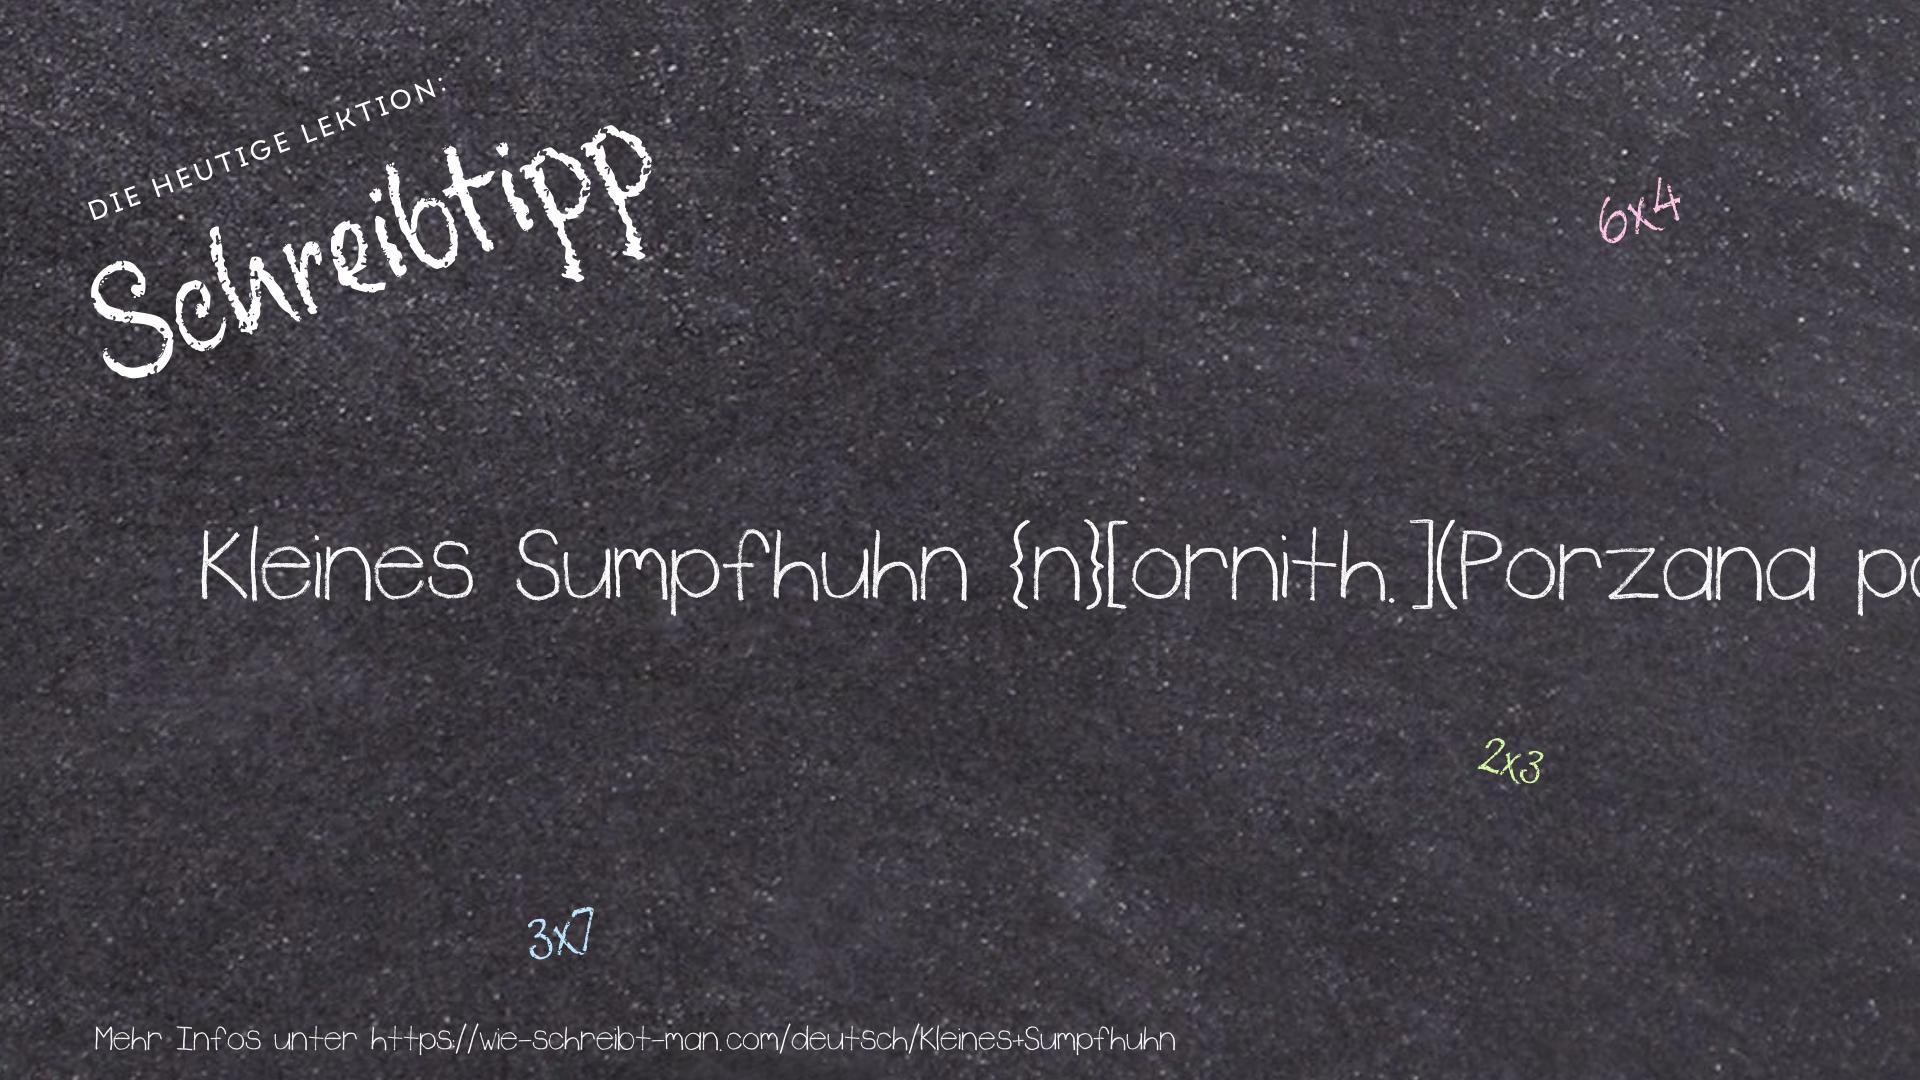 DIE HEUTIGE LEKTION:
Schreibtipp
6x4
Kleines Sumpfhuhn {n}[ornith.](Porzana
2x3
3x7
Mehr Infos unter https://wie-schreibt-man.com/deutsch/Kleines+Sumpfhuhn